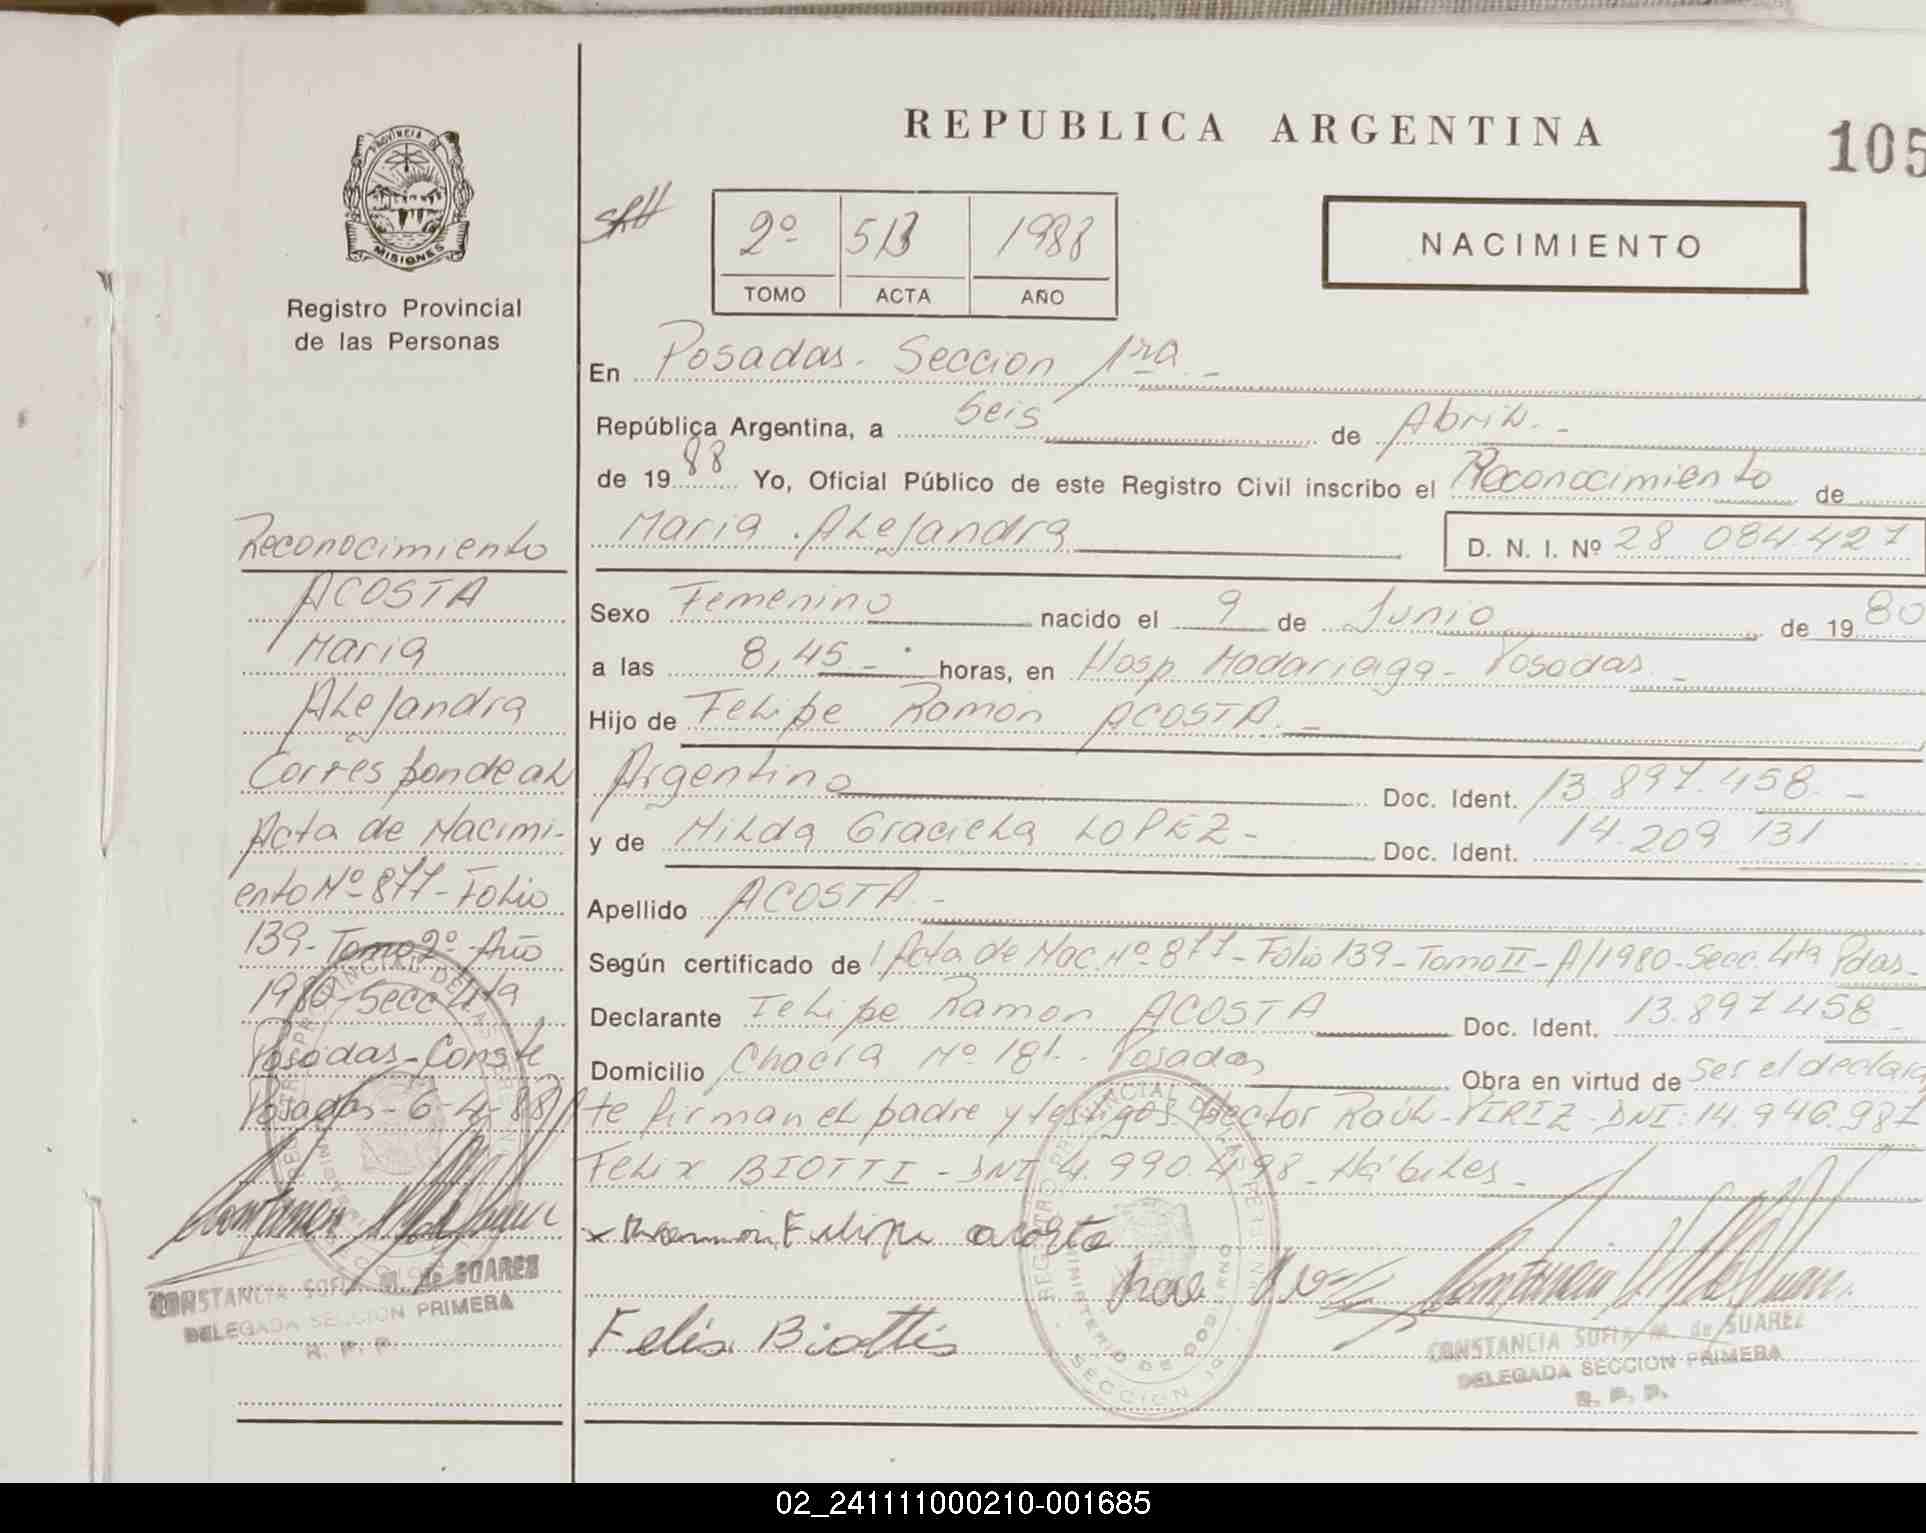 REPUBLICA ARGENTINA
105
PROVINCIA DE
MISIONES
Registro Provincial
de las Personas
2º 513 1988
TOMO ACTA AÑO
NACIMIENTO
En Posadas. Seccion 1ra. -
República Argentina, a Seis de Abril. -
de 1988 Yo, Oficial Público de este Registro Civil inscribo el Reconocimiento de
Maria Alejandra D. N. I. Nº 28 084427
Sexo Femenino nacido el 9 de Junio de 1980
a las 8,45 - horas, en Hosp Madariaga - Posadas. -
Hijo de Felipe Ramon ACOSTA. -
Argentino Doc. Ident. 13.897.458. -
y de Hilda Graciela LOPEZ - Doc. Ident. 14.209 131
Apellido ACOSTA. -
Según certificado de Acta de Nac. Nº 877 - Folio 139 - Tomo II - A/1980 - Secc. 4ta Pdas -
Declarante Felipe Ramon ACOSTA Doc. Ident. 13.897458
Domicilio Chacra Nº 181. Posadas Obra en virtud de ser el declara
te firman el padre y testigos Hector Raúl - PIRIZ - DNI: 14.946.987
Felix BIOTTI - DNI 4.990.498 - Hábiles -
x Ramon Felipe acosta
Felix Biottis
CONSTANCIA SOFIA M. de SUAREZ
DELEGADA SECCION PRIMERA
R. P. P.
Reconocimiento
ACOSTA
Maria
Alejandra
Corresponde al
Acta de Nacimi-
ento Nº 877 - Folio
139 - Tomo 2º - Año
1980 - Secc 4ta
Posadas - Conste
Posadas - 6-4-88
CONSTANCIA SOFIA M. de SUAREZ
DELEGADA SECCION PRIMERA
R. P. P.
02_241111000210-001685